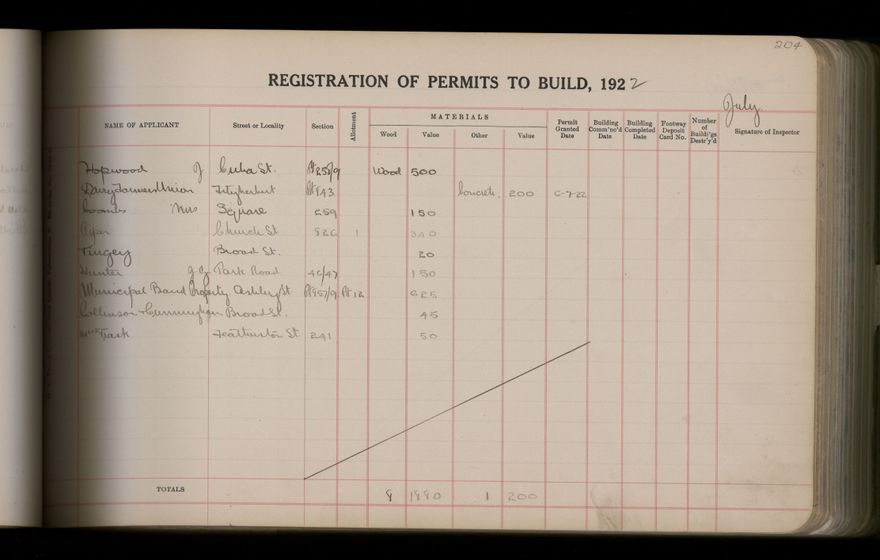 204
REGISTRATION OF PERMITS TO BUILD, 1922
July
NAME OF APPLICANT Street or Locality Section Allotment MATERIALS Wood Value Other Value Permit Granted Date Building Comm'nc'd Date Building Completed Date Footway Deposit Card No. Number of Buildi'gs Destr'y'd Signature of Inspector
Hopwood J Cuba St. Wood 500
Dairy Farmers Union Fitzherbert Pt 843 Concrete 200 6-7-22
Coombs Mrs Square 669 150
Church St 1 340
Tingey Broad St. 20
Hunter Park Road 46/47 150
Municipal Band Property Ashley St Pt 12 625
Collinson & Cunningham Broad St. 45
Trask Featherston St 241 50
TOTALS 9 1 200